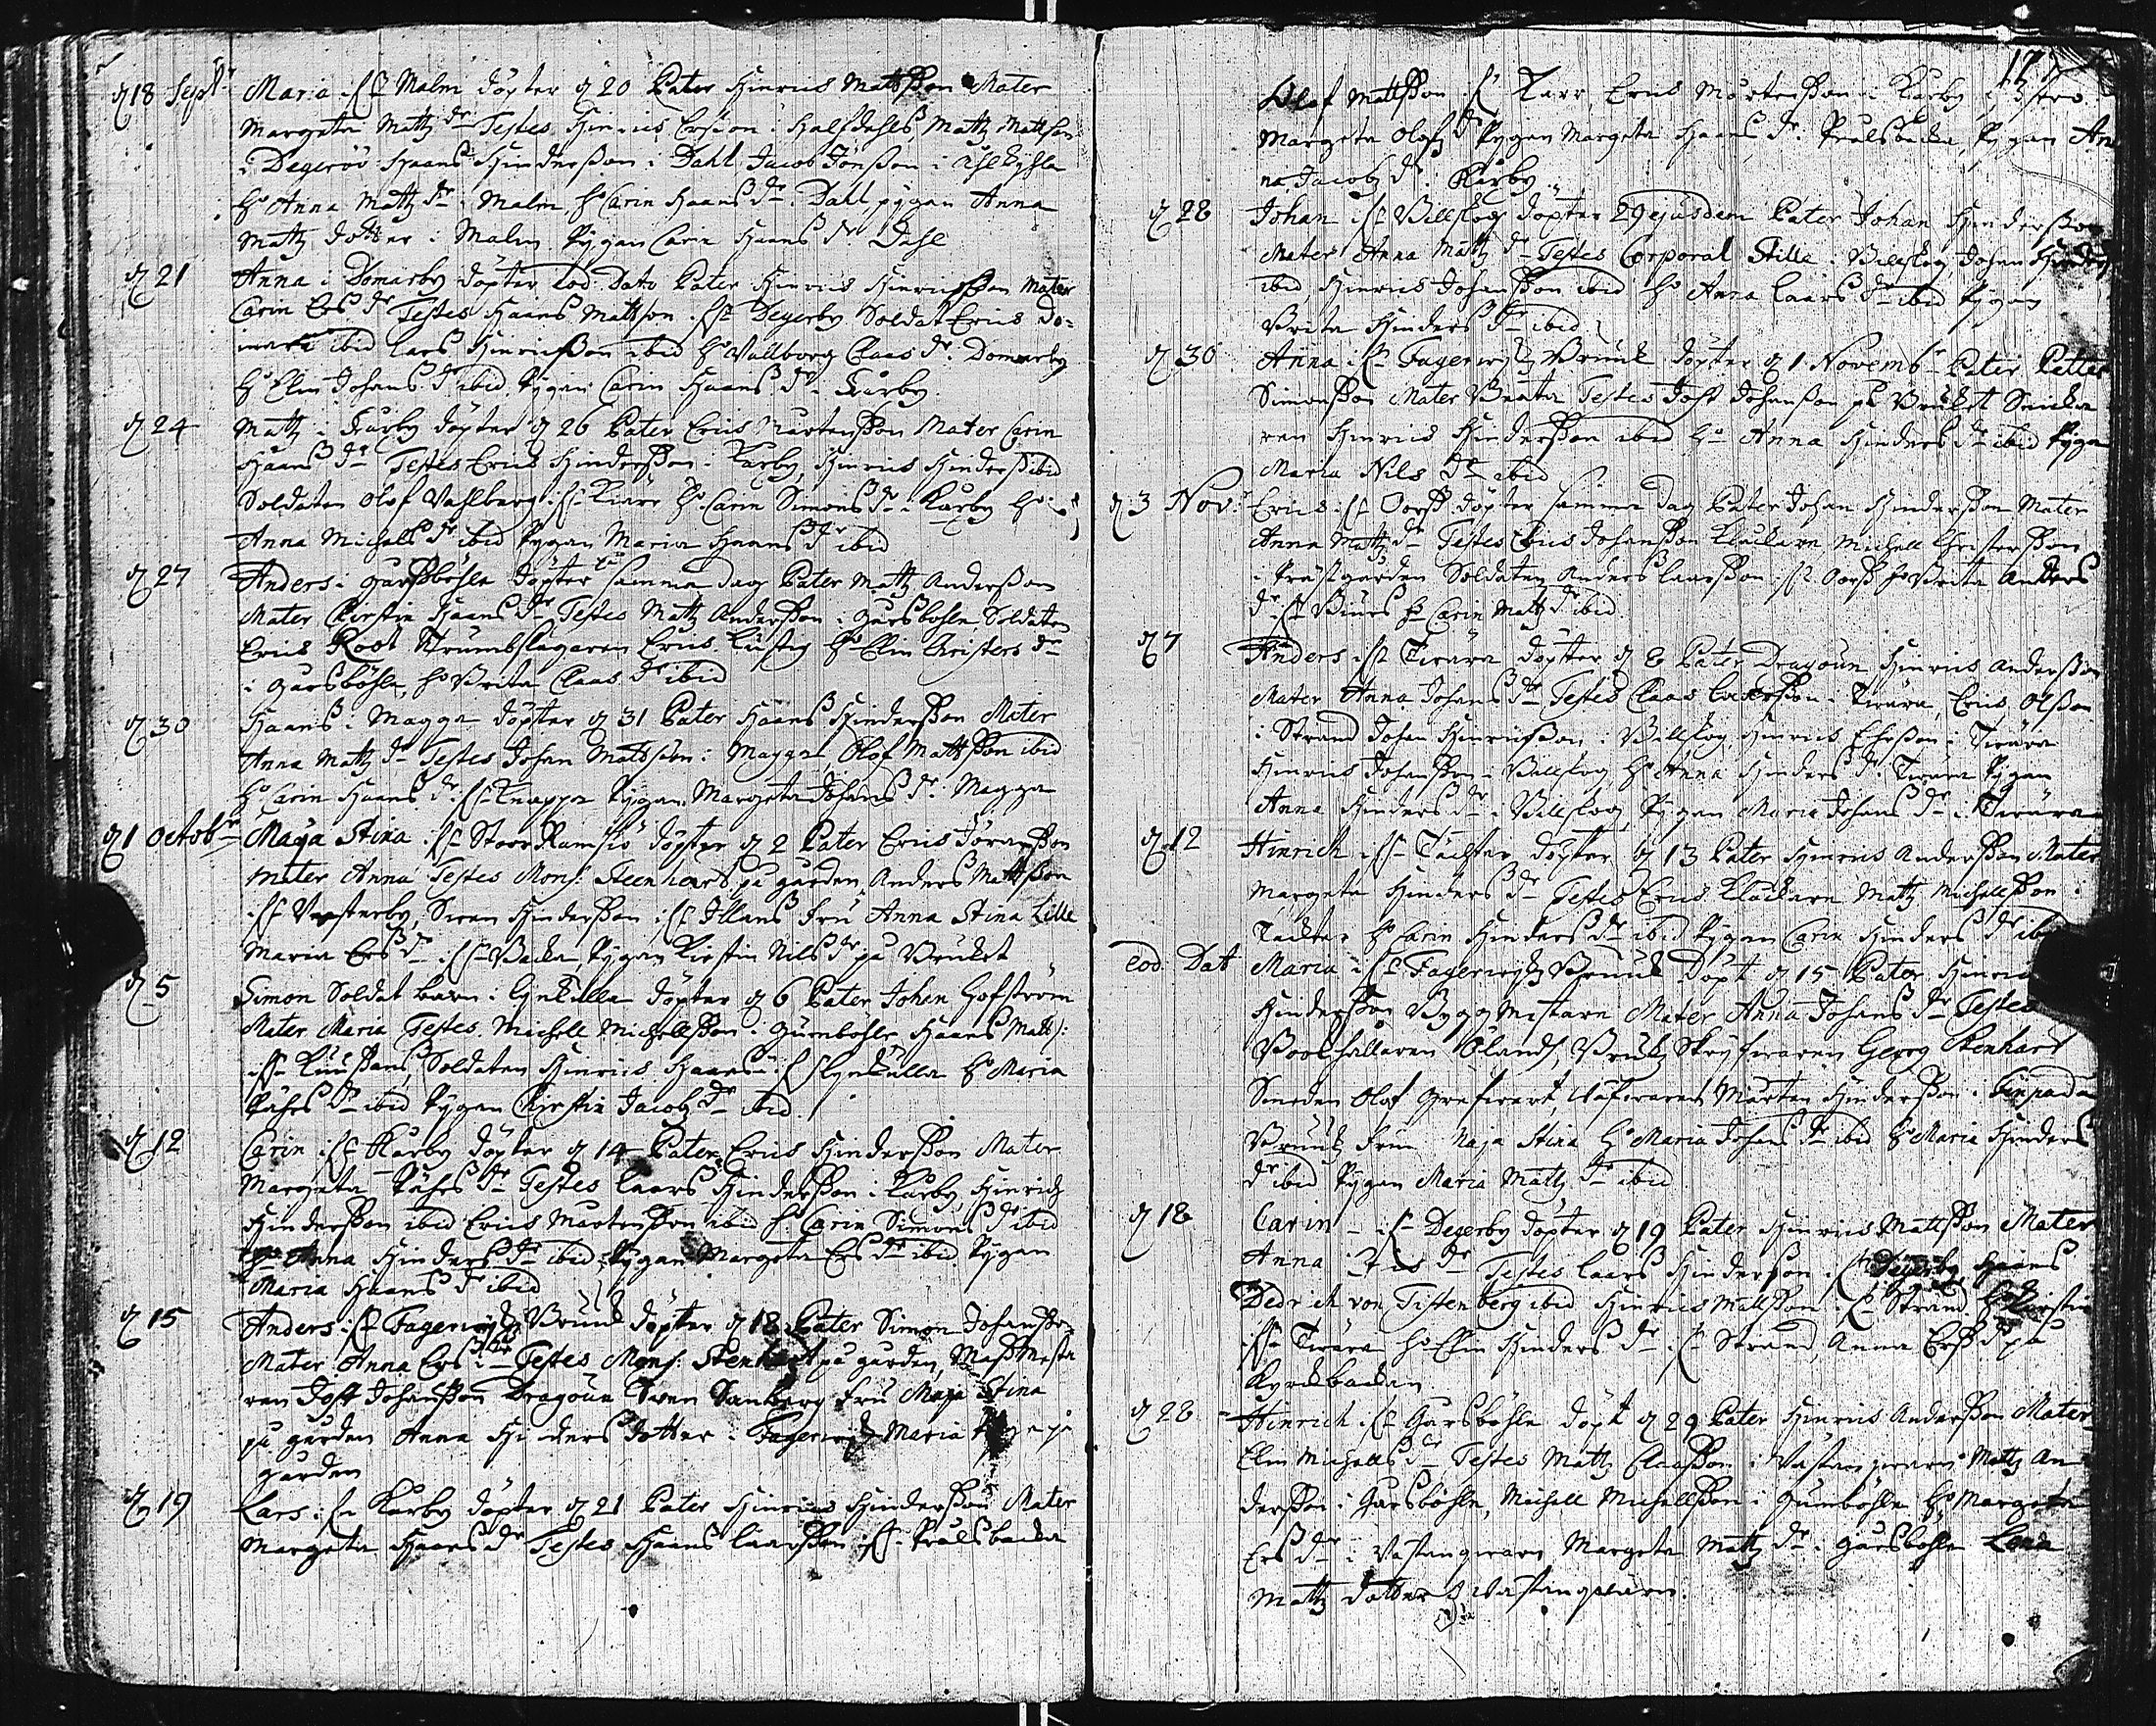 d 18 Sept: Maria i Malm döpter d 20 Pater Hinrics Mattsson Mater
Margeta Mattz dr Testes Hinrics Ersson i Halfdahls, Mattz Mattson
i Degeröö Haans Hindersson i Dahl Jacob Jönsson i
H: Anna Mattz dr i Malm H: Carin Haans dr i Dahl, pygan Anna
Mattz dotter i Malm Pygan Carin Haans dr Dahl
d 21 Anna i Domarby döpter Eod Dato Pater Hinrics Hinricsson Mater
Carin Ers dr Testes Haans Mattson i Degerby Soldat Erics Do-
mare ibid Lars Hinricsson ibid H: Vallborg Claas dr Domarby
H: Elin Johans dr ibid. Pygan Carin Haans dr i Karby
d 24 Mattz i Karby döpter d 26 Pater Erics Martensson Mater Carin
Haans dr Testes Erics Hindersson i Karby, Hinrics Hinderss ibid
Soldaten Olof Vahlberg i Kiärr H: Carin Simons dr i Karby H:
Anna Michells dr ibid Pygan Maria Haans dr ibid
d 27 Anders i Garsböhle döpter samma dag Pater Mattz Andersson
Mater Kirstin Haans dr Testes Mattz Andersson i Garsbohle Soldaten
Erics Root Trumbslagaren Erics Lustig H: Elin Christers dr
i Garsböhle, H: Brita Claas dr ibid
d 30 Haans i Magga döpter d 31 Pater Haans Hindersson Mater
Anna Mattz dr Testes Johan Mattsson i Magga, Olof Mattsson ibid
H: Carin Haans dr i Knappa Pygan Margeta Johans dr Magga
d 1 Octobr Maija Stina i Stoor Ramsiö döpter d 2 Pater Erics Jöransson
Mater Anna Testes Mons: Steenhart på gården Anders Mattsson
i Westerby, Swen Hindersson i Illans Fru Anna Stina Lille
Maria Ers dr i Backa, Pygan Kirstin Nils dr på Bruket
d 5 Simon Soldat barn i Cynkulla döpter d 6 Pater Johan Hofström
Mater Maria Testes Michell Michellsson i Gumbohle Haans Matts:
i Soldaten Hinrics Haans i Cynkulla H: Maria
Påhls dr ibid Pygan Kirstin Jacobz dr ibid
d 12 Carin i Karby döpter d 14 Pater Erics Hindersson Mater
Margeta Påhls dr Testes Laars Hindersson i Karby, Hinrich
Hindersson ibid Erics Martensson ibid H: Carin Simons dr ibid
H: Anna Hinders dr ibid Pygan Margeta Ers dr ibid Pygan
Maria Haans dr ibid
d 15 Anders i Fagerwyk Bruuk döpter d 18 Pater Simon Johansson
Mater Anna Ers dr Testes Mons: Stenhart på gården, Mass
ren Jost Johansson Dragoun Swen Sanberg Fru Maja Stina
på gården Anna Hinders dotter i Fagerwyk Maria på
gården
d 19 Lars i Karby döpter d 21 Pater Hinrics Hindersson Mater
Margeta Haans dr Testes Haans Laarsson i Prålsbacka
177
Olof Mattsson i Karr Erics Mårtensson i Karby
Margeta Olofz dr Pygan Margeta Haans dr Prålsbacka, Pygan An
na Jacobz dr Karby
d 28 Johan i Billskog döpter 29 ejusdem Pater Johan Hindersson
Mater Anna Mattz dr Testes Corporal Stille i Billskog, Johan
ibid Hinrics Johansson ibid H: Anna Laars dr ibid Pygan
Brita Hinders dr ibid
d 30 Anna i Fagerwyk Bruuk döpter d 1 Novembr Pater Petter
Simonsson Mater Beata Testes Jost Johansson på Bruket Snicka
ren Hinrics Hindersson ibid H: Anna Hinders dr ibid Pygan
Maria Nils dr ibid
d 3 Nov: Erics i Oors döpter samma dag Pater Johan Hindersson Mater
Anna Mattz dr Testes Erics Johansson Klåckarn, Michell Christersson
i Prästgården Soldaten Anders Laarsson i Oors H: Brita Anders
dr i H: Carin Mattz dr ibid
d 7 Anders i Twära döpter d 8 Pater Dragoun Hinrics Andersson
Mater Anna Johans dr Testes Claas i Twära, Erics Olsson
i Strand Johan Hinricsson i Billskog, Hinrics i Twära
Hinrics Johansson i Billskog H: Anna Hinders dr Twära Pygan
Anna Hinders dr i Billskog, Pygan Maria Johans dr i Twära
d 12 Hinrich i Täckter döpter d 13 Pater Hinrics Andersson Mater
Margeta Hinders dr Testes Erics Klåckarn Mattz Michellsson i
Täckter H: Carin Hinders dr ibid Pygan Carin Hinders dr ibid
Eod. Dat Maria i Fagerwyk Bruuk Döpt d 15 Pater Hinrics
Hindersson Bygg Mestarn Mater Anna Johans dr Testes
Bookhållaren Ölandh, Bruks Skrifwaren Georg Stenhart
Smeden Olof Marten Hindersson i
Bruuk Fru Maja Stina H: Maria Johans dr ibid H: Maria Hinders
dr ibid Pygan Maria Mattz dr ibid
d 18 Carin i Degerby döpter d 19 Pater Hinrics Mattsson Mater
Anna dr Testes Laars Hinderson i Degerby Haans
Dedrich von Tistenberg ibid Hinrics Mattsson i Strand H: Kirstin
i Twära H: Elin Hinders dr i Strand, Anna Ers dr på
Kyrckbackan
d 28 Hinrich i Garsböhle döpt d 29 Pater Hinrics Andersson Mater
Elin Michells dr Testes Mattz Claasson i Mattz An
dersson i Garsböhle, Michell Michellsson i Gumböhle, H: Margeta
Ers dr i Margeta Mattz dr i Garsbohle Lena
Mattz dotter i